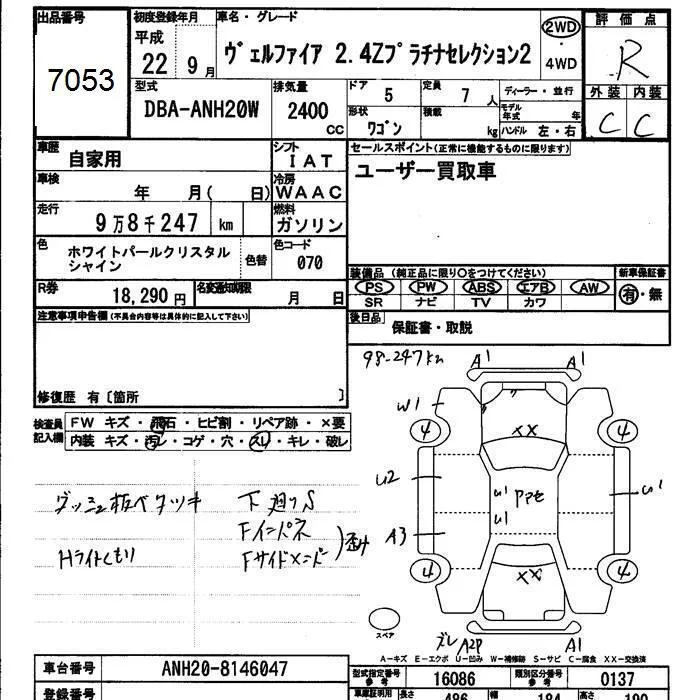 出品番号
7053
初度登録年月
平成
22年 9月
車名・グレード
ヴェルファイア 2.4Zプラチナセレクション2
2WD
・
4WD
評価点
R
外装 内装
C C
型式
DBA-ANH20W
排気量
2400
CC
ドア
5
定員
7人
形状
ワゴン
積載
kg
ディーラー・並行
モデル年式 年
ハンドル 左・右
車歴
自家用
シフト
IAT
車検
年 月( 日)
冷房
WAAC
走行
9万8千247 km
燃料
ガソリン
色
ホワイトパールクリスタル
シャイン
色替
色コード
070
R券
18,290円
名変通知期限
月 日
セールスポイント(正常に機能するものに限ります)
ユーザー買取車
装備品 (純正品に限り〇をつけてください)
新車保証書
PS PW ABS エアB AW
SR ナビ TV カワ
有・無
後日品
保証書・取説
注意事項申告欄(不具合内容等は具体的に記入して下さい)
修復歴 有〔箇所 〕
検査員
記入欄
FW キズ・飛石・ヒビ割・リペア跡・×要
内装 キズ・汚レ・コゲ・穴・スレ・キレ・破レ
ダッシュ板ベタツキ
Hライトくもり
下廻りS
Fインパネ
Fサイドメンバー
歪み
98-247km
A1 A1
W1
4 4
XX
U2
U1 Pアセ
U1
U1
A3
4 4
XX
スペア
ズレ A2P A1
A-キズ E-エクボ U-凹み W-補修跡 S-サビ C-腐食 XX-交換済
車台番号
ANH20-8146047
登録番号
型式指定番号
参考
16086
類別区分番号
参考
0137
車庫証明用
参考
長さ
486
幅
184
高さ
190